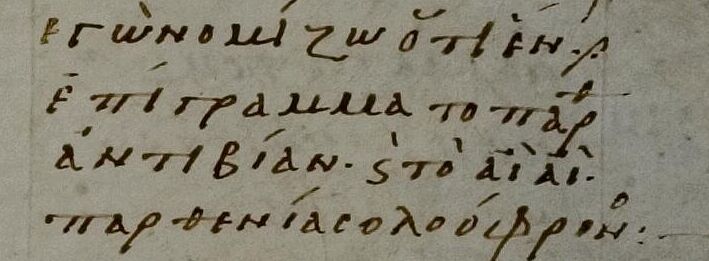 ἐγὼ νομίζω ὅτι ἐν.
ἐπίγραμμα το παρ
ἀντιβίαν. ϛ τὸ αἲ αἲ.
παρθενίας ολοόφρον: